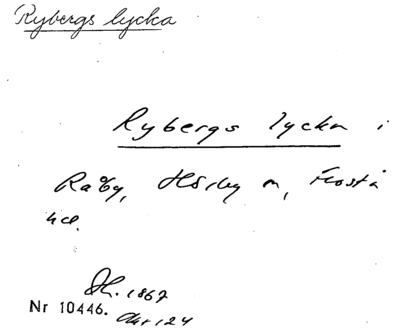 Rybergs lycka
Rybergs lycka i
Råby, Hörby sn, Frosta
hd.
1867
Nr 10446. Akt 124